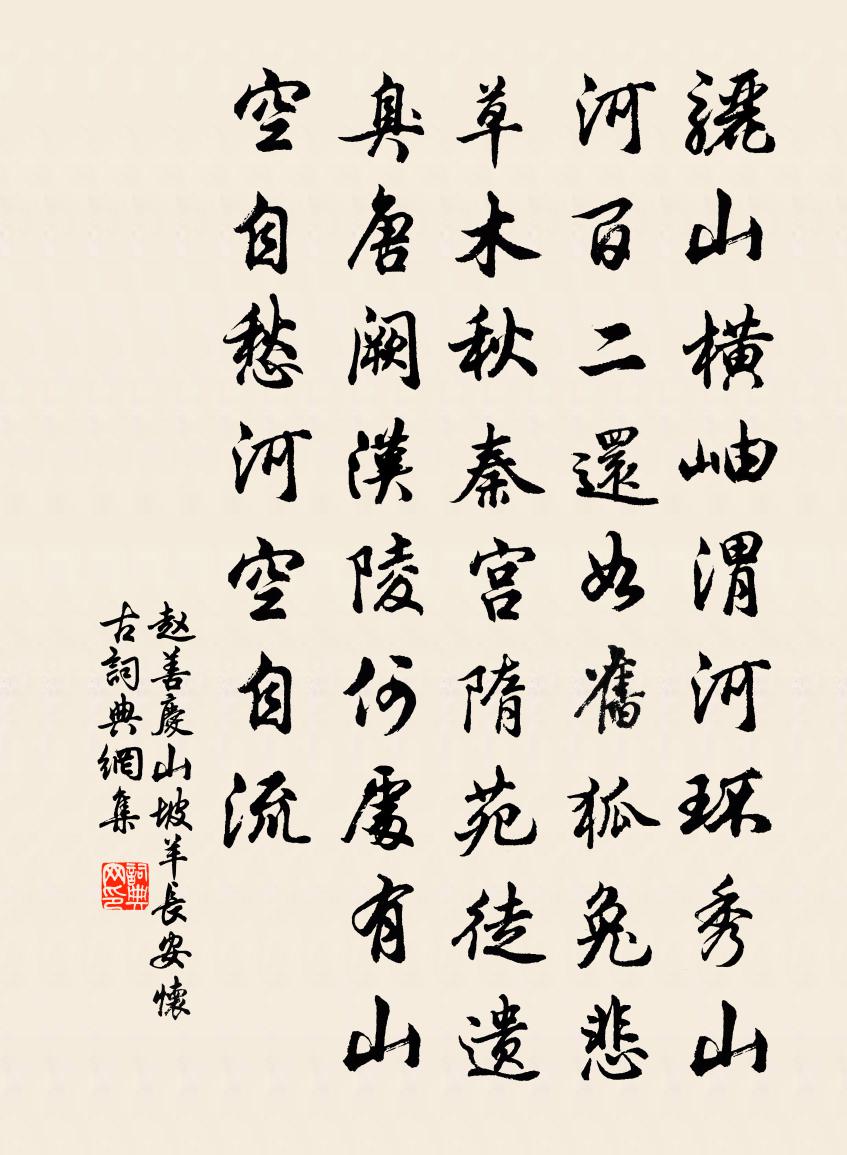 驪山橫岫渭河環秀山
河百二還如舊狐兔悲
草木秋秦宮隋苑徒遺
臭唐闕漢陵何處有山
空自愁河空自流
赵善慶山坡羊長安懷
古詞典網集
詞典網印